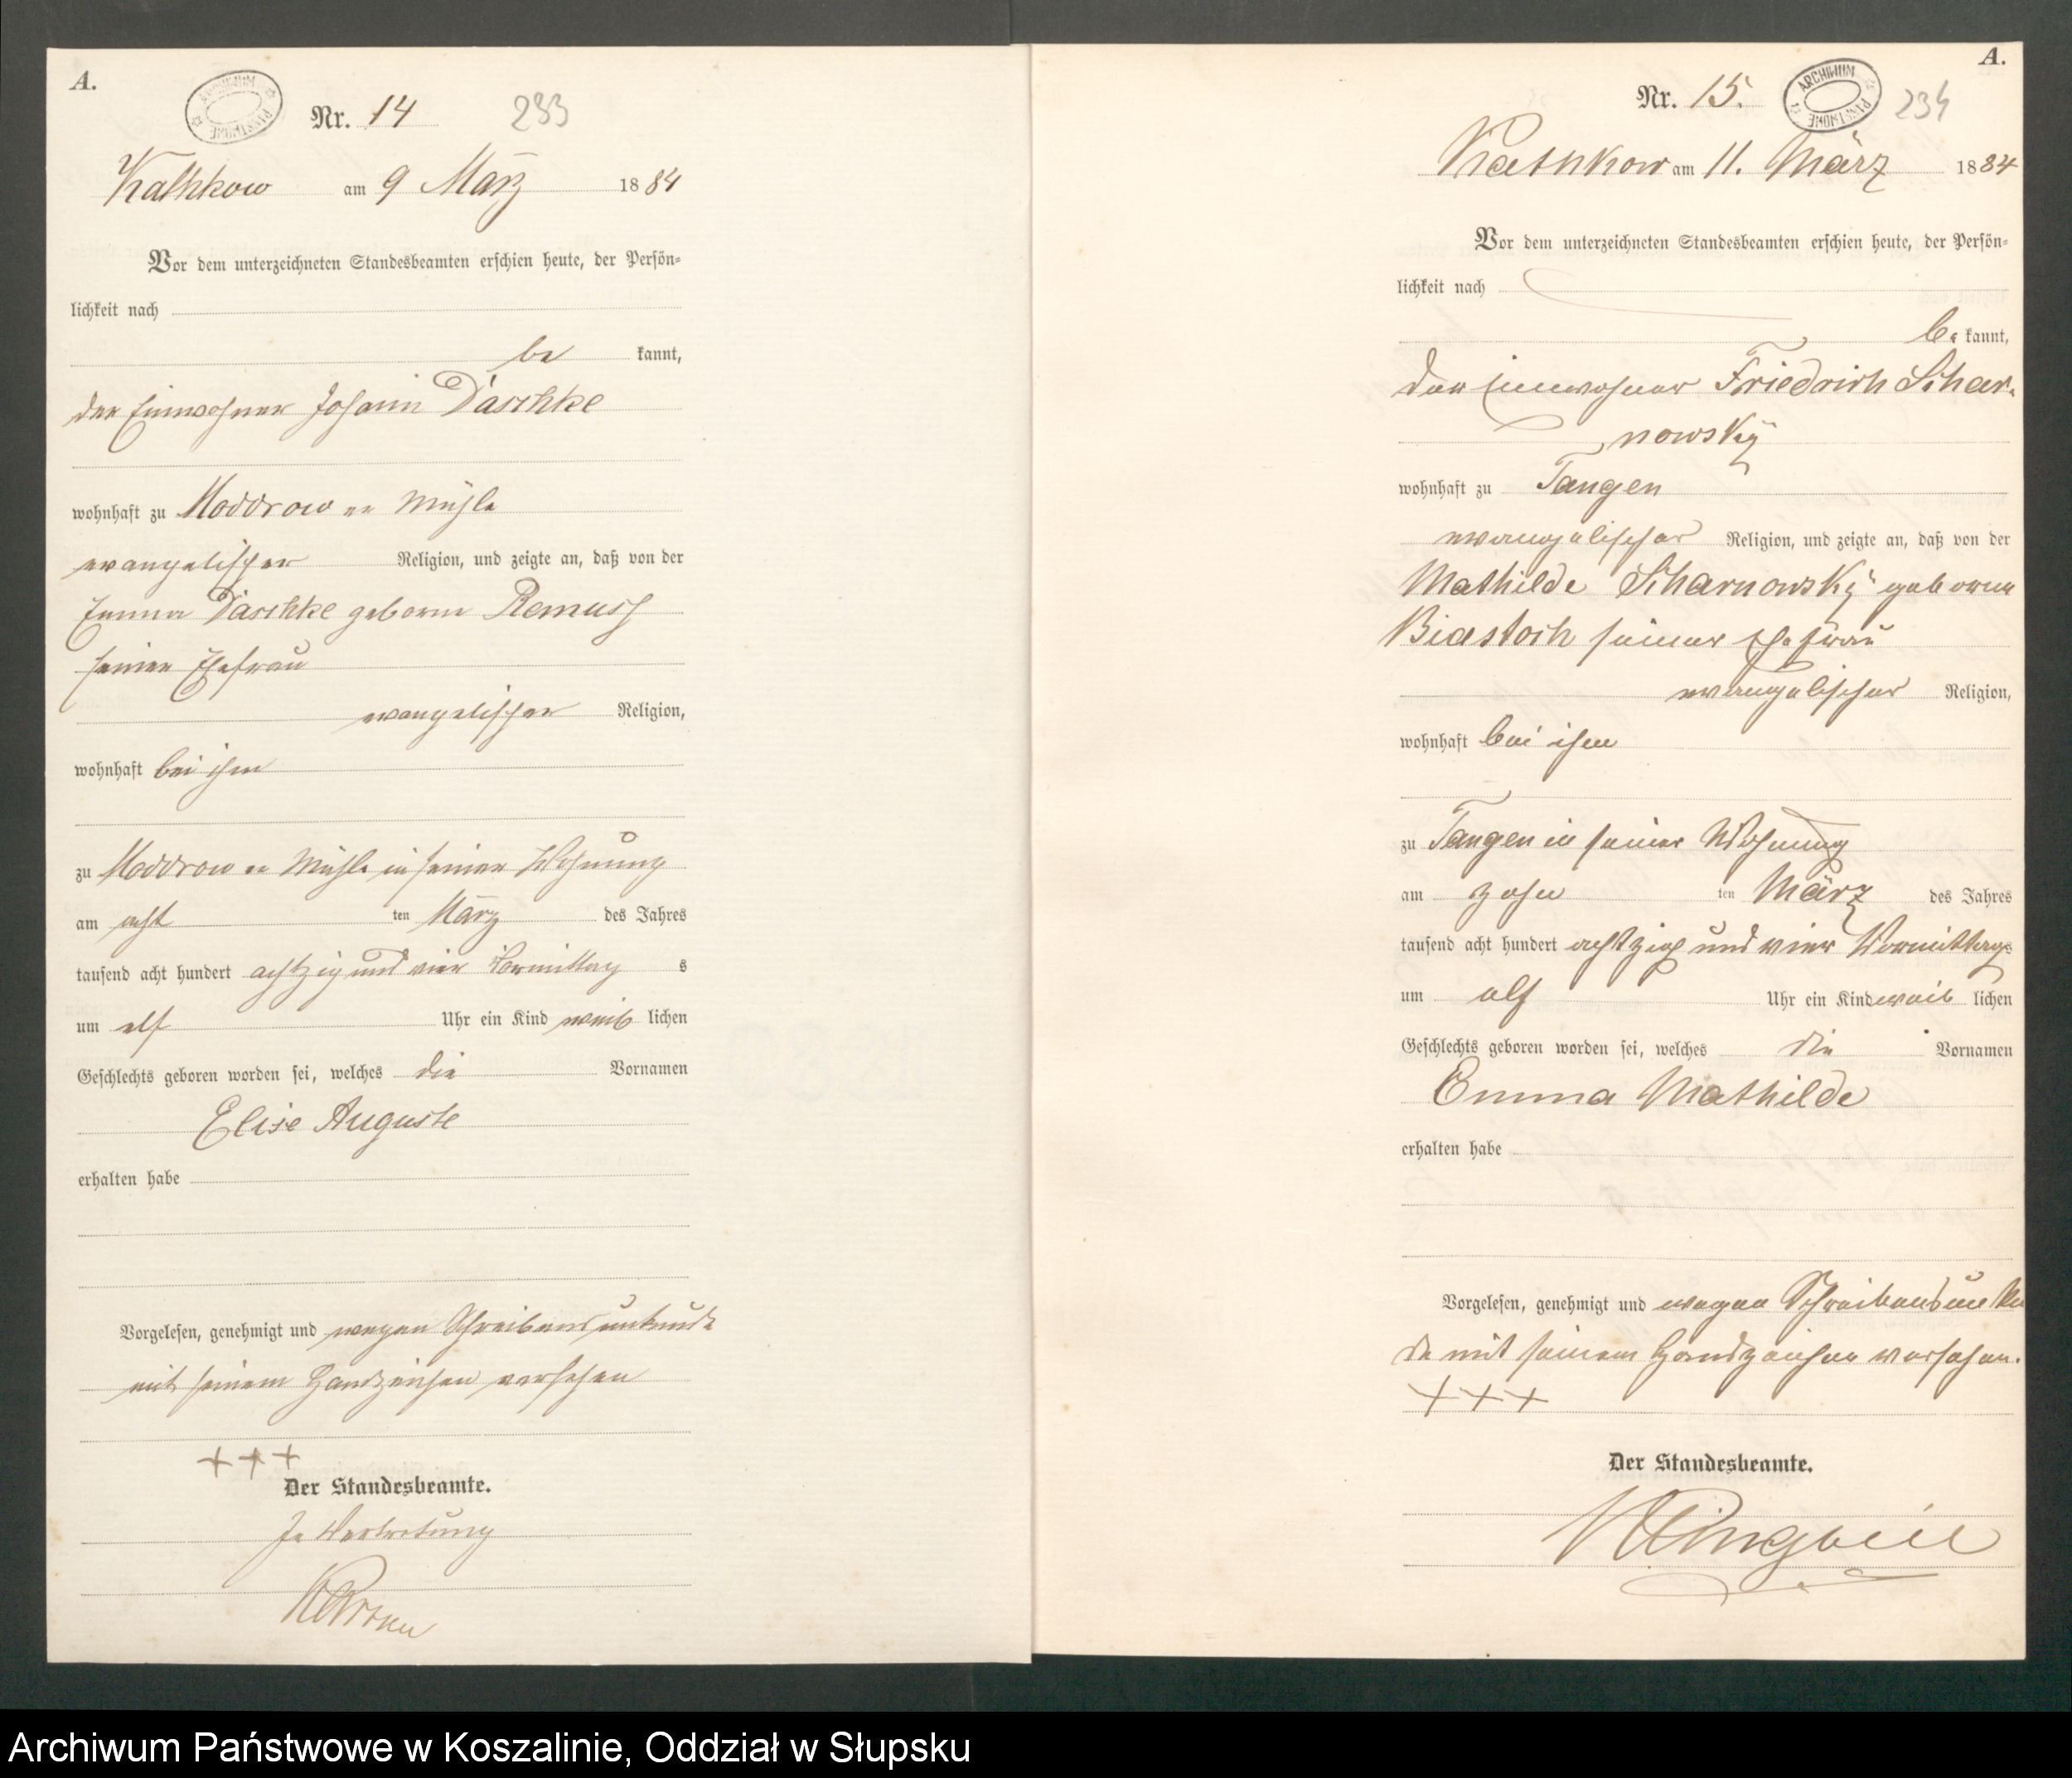 A.
ARCHIWUM PAŃSTWOWE
Nr. 14 233
Kathkow am 9 März 1884
Vor dem unterzeichneten Standesbeamten erschien heute, der Persön-
lichkeit nach
be kannt,
der Einwohner Johann Paschke
wohnhaft zu Moddrow er Mühle
evangelischer Religion, und zeigte an, daß von der
Emma Paschke geborne Remuss
seiner Ehefrau
evangelischer Religion,
wohnhaft bei ihm
zu Moddrow er Mühle in seiner Wohnung
am acht ten März des Jahres
tausend acht hundert achtzig und vier Vormittag s
um elf Uhr ein Kind weib lichen
Geschlechts geboren worden sei, welches die Vornamen
Elise Auguste
erhalten habe
Vorgelesen, genehmigt und wegen Schreibensunkunde
mit seinem Handzeichen versehen
+++
Der Standesbeamte.
In Vertretung
A.
Nr. 15. ARCHIWUM PAŃSTWOWE 234
Kathkow am 11. März 1884
Vor dem unterzeichneten Standesbeamten erschien heute, der Persön-
lichkeit nach
be kannt,
der Einwohner Friedrich Schar-
nowsky
wohnhaft zu Tangen
evangelischer Religion, und zeigte an, daß von der
Mathilde Scharnowsky geborne
Biastoch seiner Ehefrau
evangelischer Religion,
wohnhaft bei ihm
zu Tangen in seiner Wohnung
am zehn ten März des Jahres
tausend acht hundert achtzig und vier Vormittags
um elf Uhr ein Kind weib lichen
Geschlechts geboren worden sei, welches die Vornamen
Emma Mathilde
erhalten habe
Vorgelesen, genehmigt und wegen Schreibensunkun
de mit seinem Handzeichen versehen.
+++
Der Standesbeamte.
Archiwum Państwowe w Koszalinie, Oddział w Słupsku